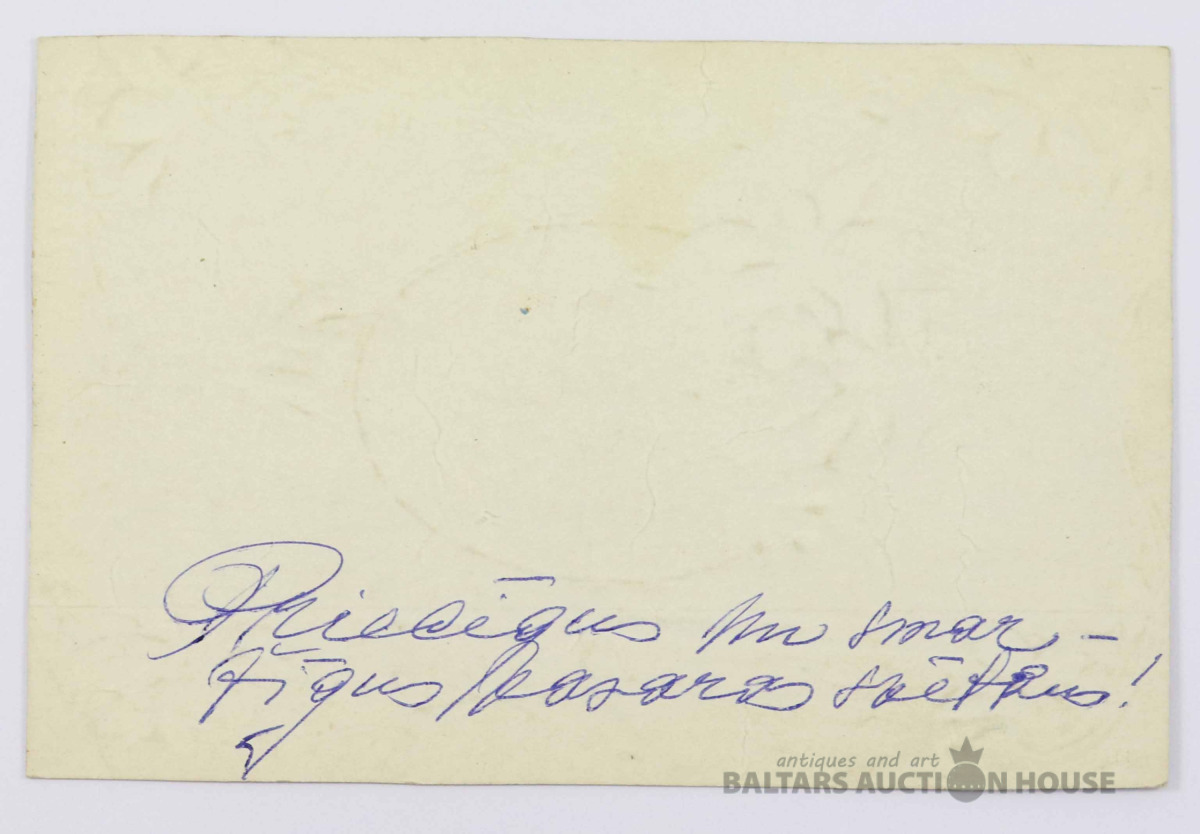 Priecīgus un smar-
žīgus Vasaras svētkus!
antiques and art
BALTARS AUCTION HOUSE